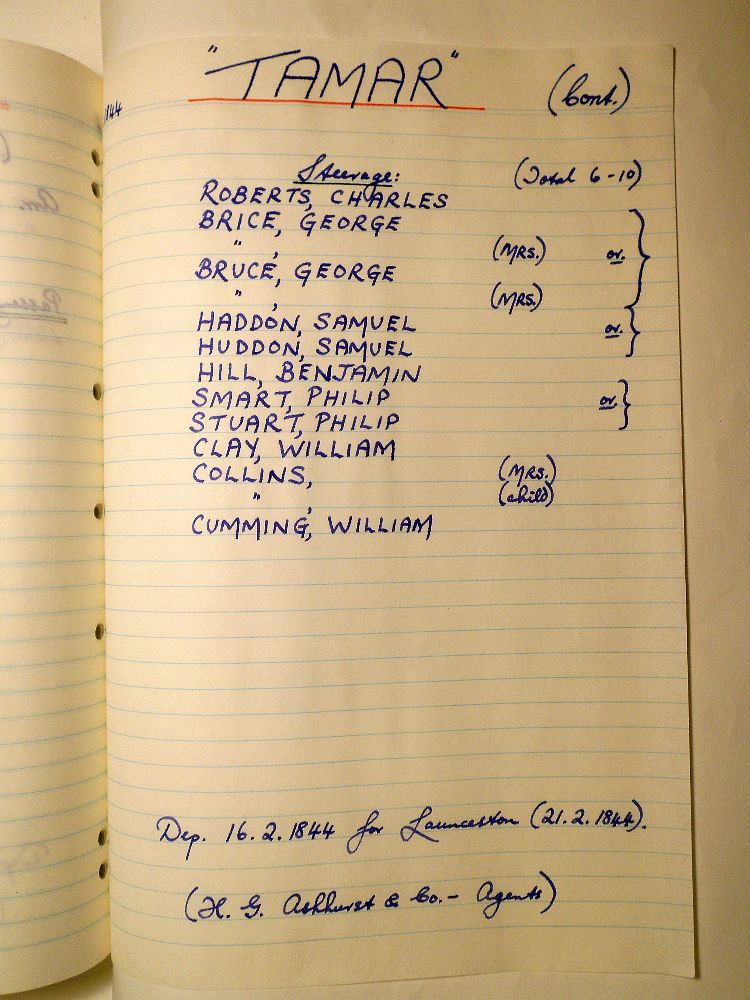 "TAMAR" (Cont.)
1844
Steerage: (Total 6-10)
ROBERTS, CHARLES
BRICE, GEORGE
" , (MRS.) or.
BRUCE, GEORGE
" , (MRS.)
HADDON, SAMUEL or.
HUDDON, SAMUEL
HILL, BENJAMIN
SMART, PHILIP or.
STUART, PHILIP
CLAY, WILLIAM
COLLINS, (MRS.)
" , (child)
CUMMING, WILLIAM
Dep. 16.2.1844 for Launceston (21.2.1844).
(H. G. Ashhurst & Co.- Agents)